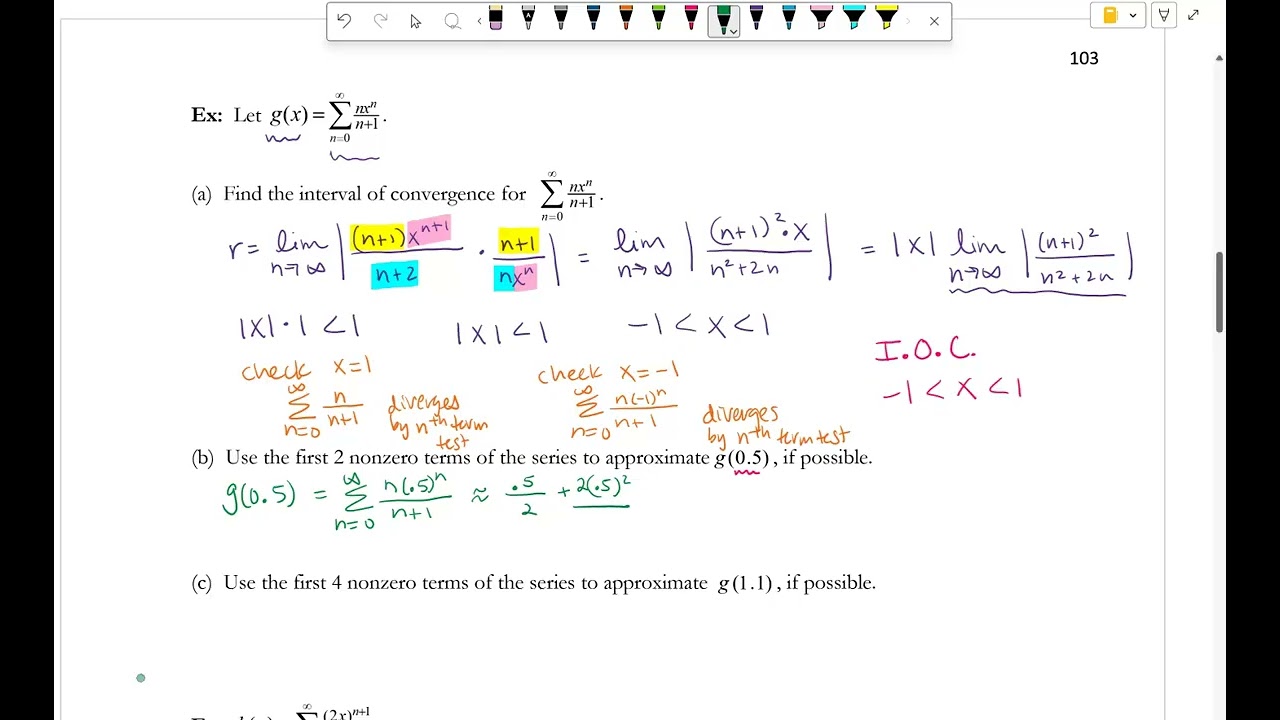 103
Ex: Let g(x) = ∑_{n=0}^{∞} nxⁿ/(n+1).
(a) Find the interval of convergence for ∑_{n=0}^{∞} nxⁿ/(n+1).
r = lim_{n→∞} | (n+1)xⁿ⁺¹/(n+2) · (n+1)/(nxⁿ) | = lim_{n→∞} | (n+1)²·x/(n²+2n) | = |x| lim_{n→∞} | (n+1)²/(n²+2n) |
|x|·1 < 1 |x| < 1 -1 < x < 1
I.O.C.
-1 < x < 1
check x=1
∑_{n=0}^{∞} n/(n+1) diverges by nth term test
check x=-1
∑_{n=0}^{∞} n(-1)ⁿ/(n+1) diverges by nth term test
(b) Use the first 2 nonzero terms of the series to approximate g(0.5), if possible.
g(0.5) = ∑_{n=0}^{∞} n(.5)ⁿ/(n+1) ≈ .5/2 + 2(.5)²
(c) Use the first 4 nonzero terms of the series to approximate g(1.1), if possible.
(2x)ⁿ⁺¹